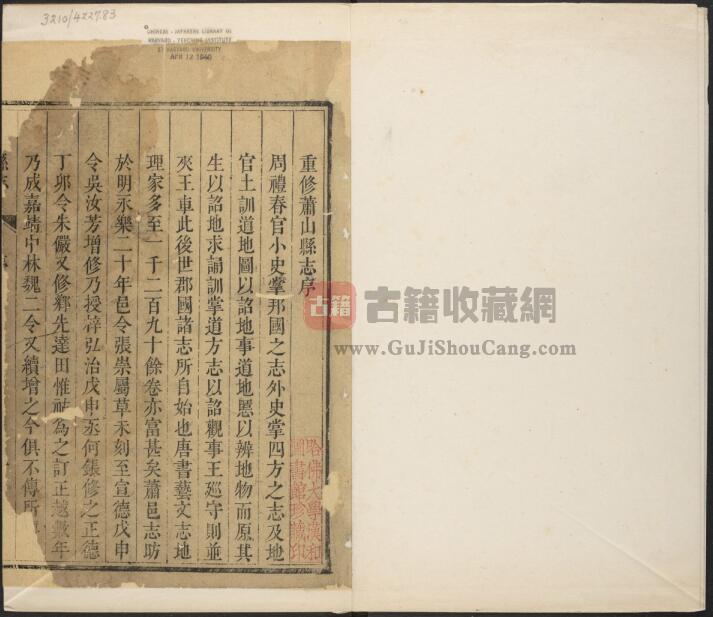 3210/4227.83
CHINESE - JAPANESE LIBRARY OF
HARVARD - YENCHING INSTITUTE
AT HARVARD UNIVERSITY
APR 12 1940
重修蕭山縣志序
周禮春官小史掌邦國之志外史掌四方之志及地
官土訓道地圖以詔地事道地慝以辨地物而原其
生以詔地求誦訓掌道方志以詔觀事王廵守則並
夾王車此後世郡國諸志所自始也唐書藝文志地
理家多至一千二百九十餘卷亦富甚矣蕭邑志昉
於明永樂二十年邑令張崇屬草未刻至宣德戊申
令吳汝芳增修乃授梓弘治戊申丞何鋹修之正德
丁卯令朱儼又修釋先達田惟祜為之訂正越數年
乃成嘉靖中林魏二令又續增之今俱不傳所
縣志
哈佛大學漢和
圖書館珍藏印
古籍
古籍收藏網
www.GuJiShouCang.com